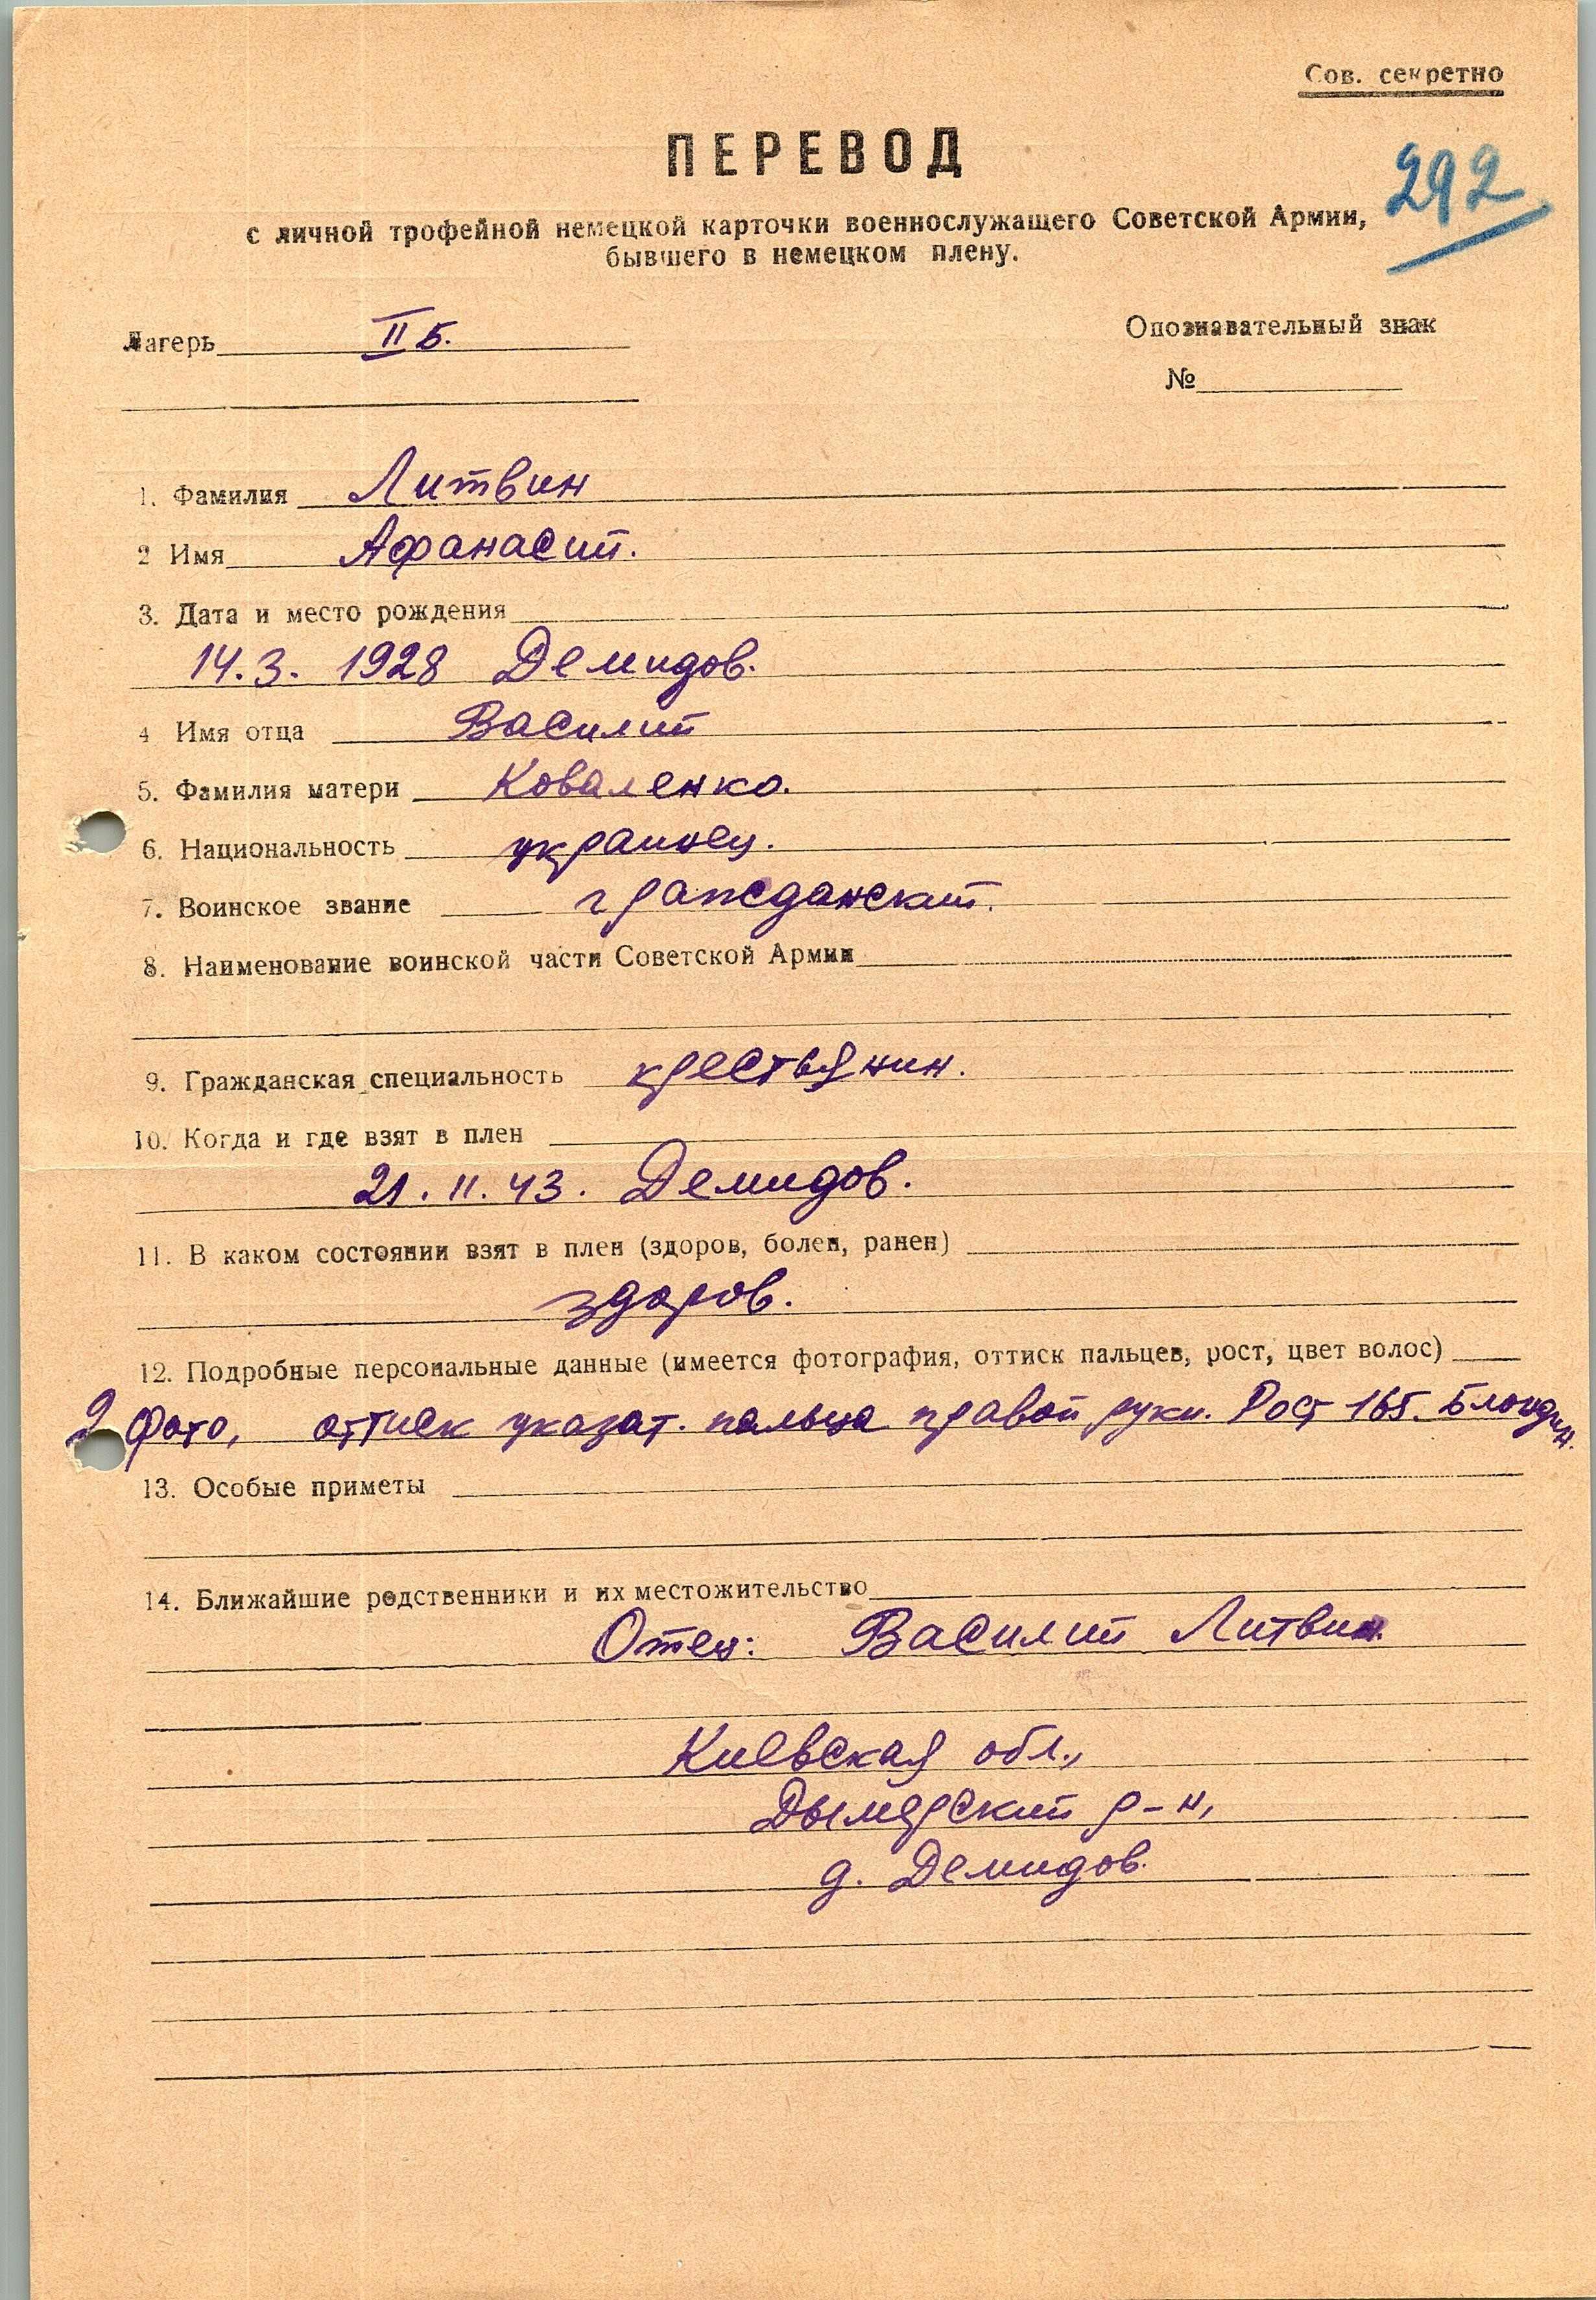 Сов. секретно
ПЕРЕВОД
292
с личной трофейной немецкой карточки военнослужащего Советской Армии,
бывшего в немецком плену.
Лагерь II Б.
Опознавательный знак
№
1. Фамилия Литвин
2 Имя Афанасий.
3. Дата и место рождения
14.3. 1928 Демидов.
4 Имя отца Василий
5. Фамилия матери Коваленко.
6. Национальность украинец.
7. Воинское звание гражданский.
8. Наименование воинской части Советской Армии
9. Гражданская специальность крестьянин.
10. Когда и где взят в плен
21. II. 43. Демидов.
11. В каком состоянии взят в плен (здоров, болен, ранен)
здоров.
12. Подробные персональные данные (имеется фотография, оттиск пальцев, рост, цвет волос)
2 фото, оттиск указат. пальца правой руки. Рост 165. Блондин.
13. Особые приметы
14. Ближайшие родственники и их местожительство
Отец: Василий Литвин.
Киевская обл.,
Дымерский р-н,
д. Демидов.